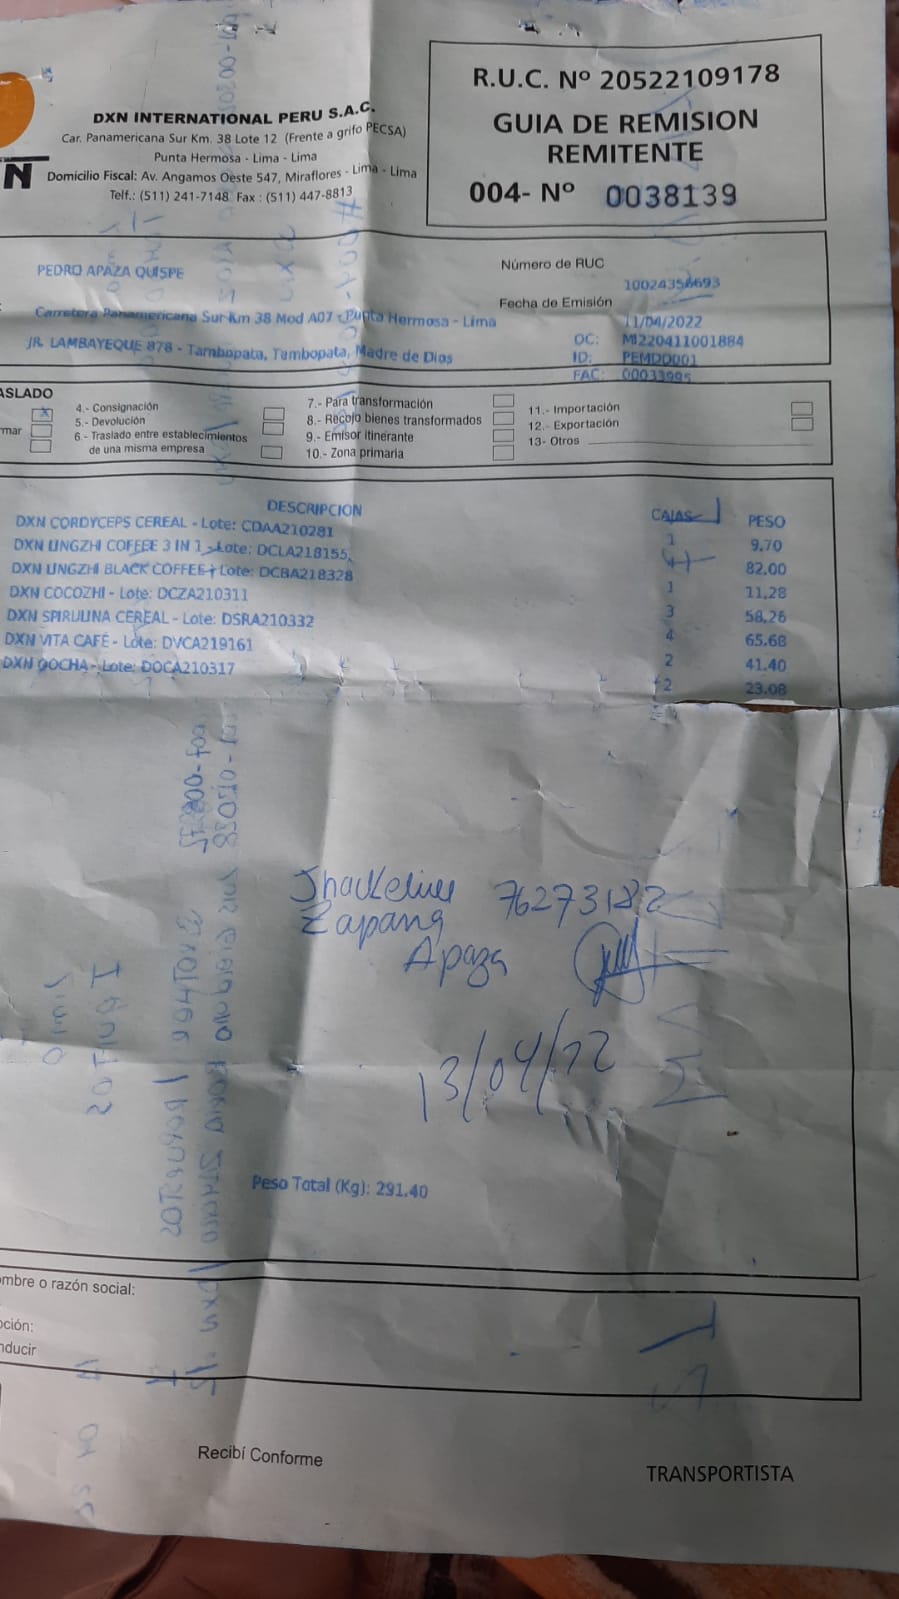 R.U.C. Nº 20522109178
GUIA DE REMISION
REMITENTE
004- Nº 0038139
N
DXN INTERNATIONAL PERU S.A.C.
Car. Panamericana Sur Km. 38 Lote 12 (Frente a grifo PECSA)
Punta Hermosa - Lima - Lima
Domicilio Fiscal: Av. Angamos Oeste 547, Miraflores - Lima - Lima
Telf.: (511) 241-7148 Fax : (511) 447-8813
PEDRO APAZA QUISPE
Número de RUC
Fecha de Emisión
11/04/2022
Carretera Panamericana Sur Km 38 Mod A07 - Punta Hermosa - Lima
JR. LAMBAYEQUE 878 - Tambopata, Tambopata, Madre de Dios
OC: MI220411001884
ID: PEMDD001
FAC: 00033995
ASLADO
X
mar
4.- Consignación
5.- Devolución
6.- Traslado entre establecimientos
de una misma empresa
7.- Para transformación
8.- Recojo bienes transformados
9.- Emisor itinerante
10.- Zona primaria
11.- Importación
12.- Exportación
13- Otros
DESCRIPCION CAJAS PESO
DXN CORDYCEPS CEREAL - Lote: CDAA210281 1 9.70
DXN LINGZHI COFFEE 3 IN 1 - Lote: DCLA218155 82.00
DXN LINGZHI BLACK COFFEE - Lote: DCBA218328 1 11,28
DXN COCOZHI - Lote: DCZA210311 3 58,26
DXN SPIRULINA CEREAL - Lote: DSRA210332 4 65.68
DXN VITA CAFÉ - Lote: DVCA219161 2 41.40
DXN OOCHA - Lote: DOCA210317 2 23.08
Jhackeline 76273182
Zapana
Apaza
13/04/22
Peso Total (Kg): 291.40
ombre o razón social:
pción:
nducir
Recibí Conforme
TRANSPORTISTA